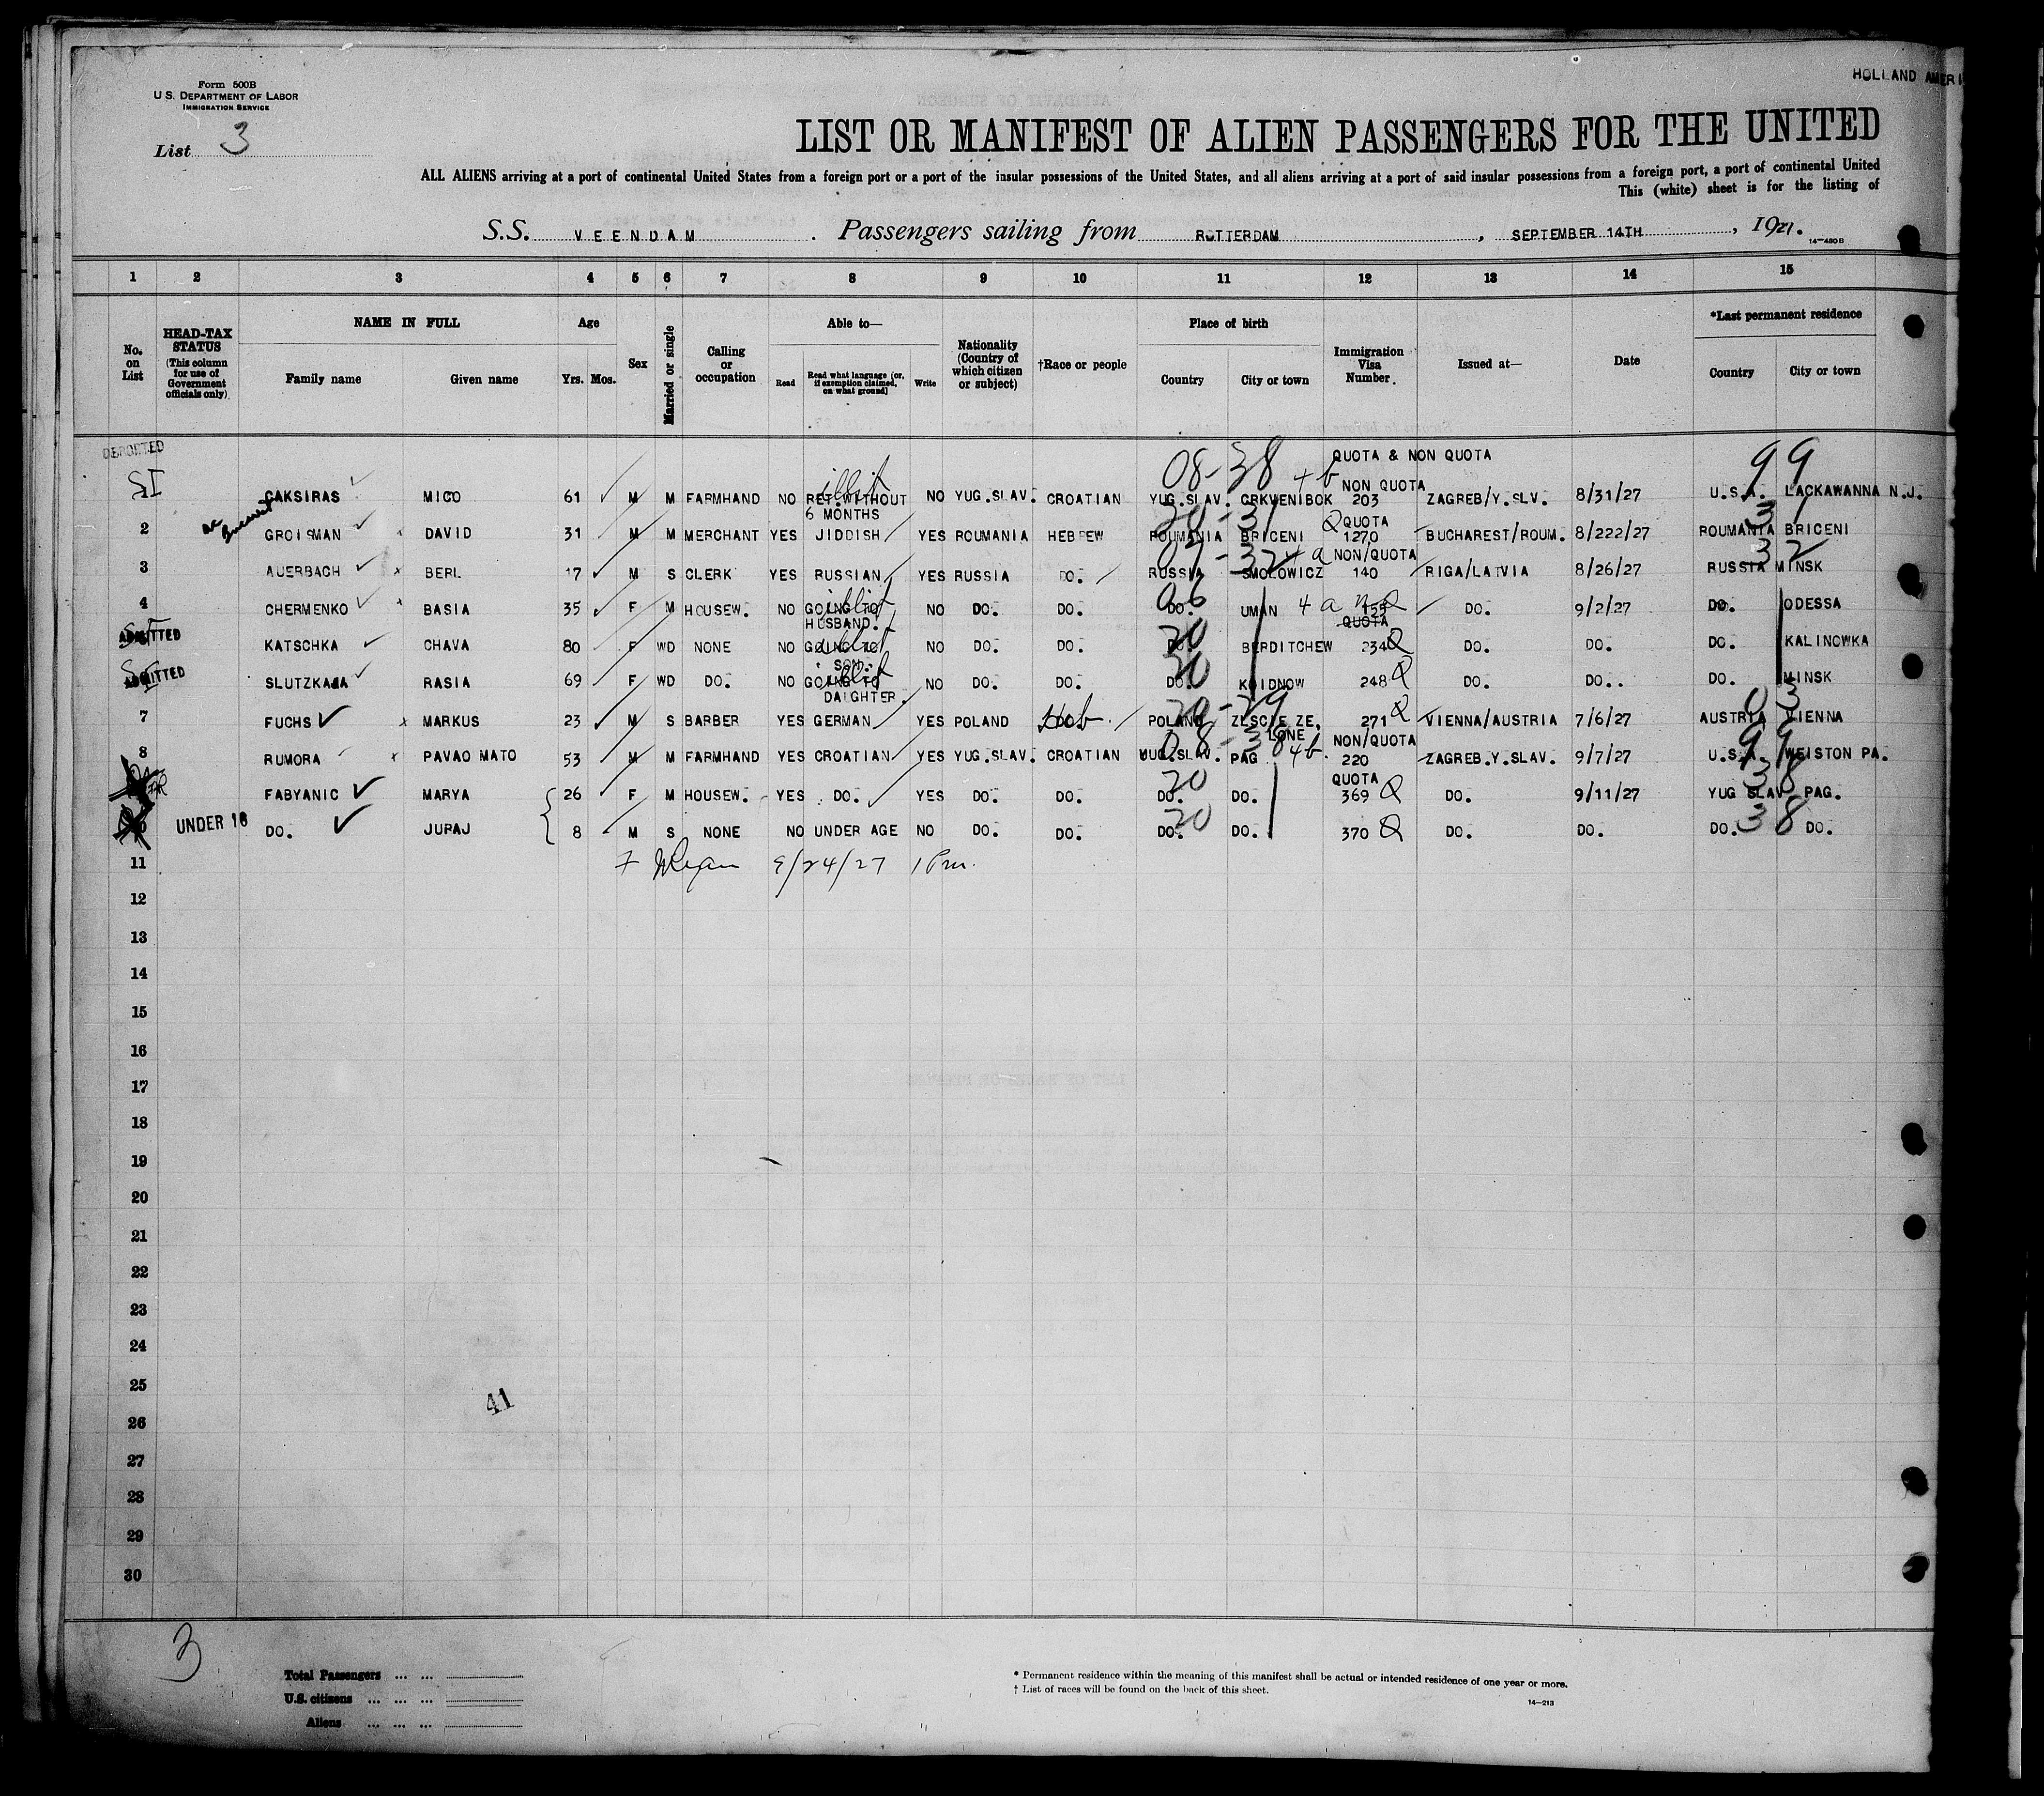 HOLLAND AMERI
Form 500B
U.S. DEPARTMENT OF LABOR
IMMIGRATION SERVICE
List 3
LIST OR MANIFEST OF ALIEN PASSENGERS FOR THE UNITED
ALL ALIENS arriving at a port of continental United States from a foreign port or a port of the insular possessions of the United States, and all aliens arriving at a port of said insular possessions from a foreign port, a port of continental United
This (white) sheet is for the listing of
S.S. VEENDAM. Passengers sailing from ROTTERDAM, SEPTEMBER 14TH, 1927.
14—480B
1 2 3 4 5 6 7 8 9 10 11 12 13 14 15
No. on List
HEAD-TAX STATUS (This column for use of Government officials only)
NAME IN FULL Family name Given name
Age Yrs. Mos.
Sex
Married or single
Calling or occupation
Able to— Read Read what language (or, if exemption claimed, on what ground) Write
Nationality (Country of which citizen or subject)
†Race or people
Place of birth Country City or town
Immigration Visa Number.
Issued at—
Date
*Last permanent residence Country City or town
DEPORTED
08-38 4b QUOTA & NON QUOTA 99
SI illit NON QUOTA
1 CAKSIRAS MICO 61 M M FARMHAND NO RET.WITHOUT NO YUG.SLAV. CROATIAN YUG.SLAV. CRKVENIBOK 203 ZAGREB/Y.SLV. 8/31/27 U.S.A. LACKAWANNA N.J.
6 MONTHS 20-31 Q QUOTA 31
2 GROISMAN DAVID 31 M M MERCHANT YES JIDDISH YES ROUMANIA HEBREW ROUMANIA BRICENI 1270 BUCHAREST/ROUM. 8/222/27 ROUMANIA BRICENI
07-32 4a NON/QUOTA 32
3 AUERBACH BERL 17 M S CLERK YES RUSSIAN YES RUSSIA DO. RUSSIA SMOLOWICZ 140 RIGA/LATVIA 8/26/27 RUSSIA MINSK
4 CHERMENKO BASIA 35 F M HOUSEW. NO GOING TO illit NO DO. DO. 06 DO. UMAN 4a NQ DO. 9/2/27 DO. ODESSA
HUSBAND. QUOTA
ADMITTED SI KATSCHKA CHAVA 80 F WD NONE NO GOING TO illit NO DO. DO. 20 DO. BERDITCHEW 234 Q DO. DO. DO. KALINOWKA
SON.
ADMITTED SI SLUTZKAJA RASIA 69 F WD DO. NO GOING TO illit NO DO. DO. 20 DO. KOIDNOW 248 Q DO. DO.. DO. MINSK
DAUGHTER. 20-29 03
7 FUCHS MARKUS 23 M S BARBER YES GERMAN YES POLAND Heb. POLAND ZLSCIEZE. 271 Q VIENNA/AUSTRIA 7/6/27 AUSTRIA VIENNA
LONE 08-38 4b. NON/QUOTA 99
8 RUMORA PAVAO MATO 53 M M FARMHAND YES CROATIAN YES YUG.SLAV. CROATIAN YUG.SLAV. PAG 220 ZAGREB.Y.SLAV. 9/7/27 U.S.A. WEISTON PA.
20 QUOTA 38
FABYANIC MARYA 26 F M HOUSEW. YES DO. YES DO. DO. DO. DO. 369 Q DO. 9/11/27 YUG SLAV PAG.
UNDER 16 DO. JURAJ 8 M S NONE NO UNDER AGE NO DO. DO. 20 DO. DO. 370 Q DO. DO. DO. 38 DO.
11 9/24/27 1 Pm.
12
13
14
15
16
17
18
19
20
21
22
23
24
25
41
26
27
28
29
30
3
Total Passengers ... ...
U.S. citizens ... ... ...
Aliens ... ... ...
* Permanent residence within the meaning of this manifest shall be actual or intended residence of one year or more.
† List of races will be found on the back of this sheet.
14—213